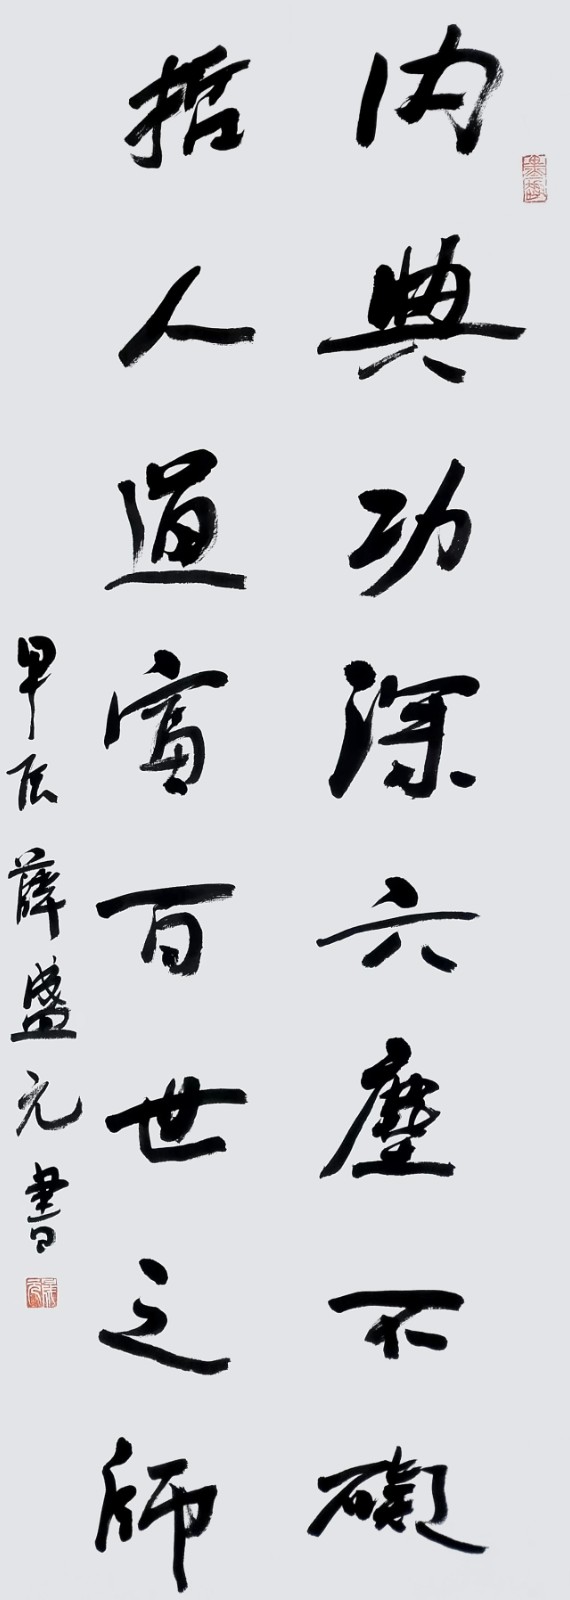 内典功深六塵不礙
哲人道富百世之師
甲辰薛盛元書